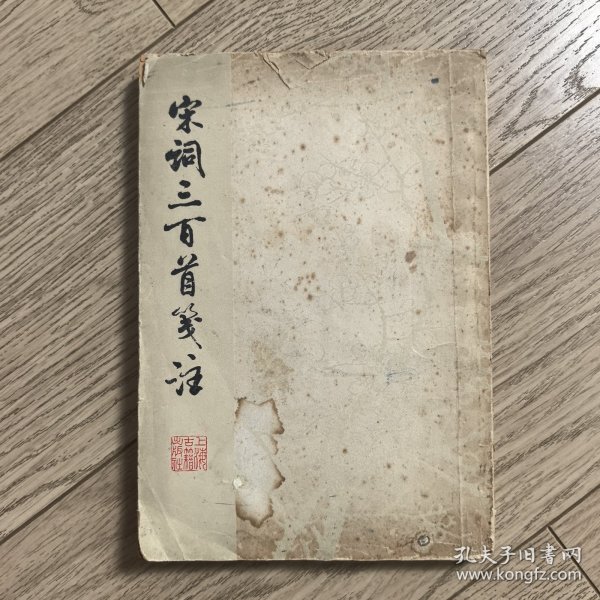 宋词三百首笺注
上海
古籍
出版社
孔夫子旧书网
www.kongfz.com